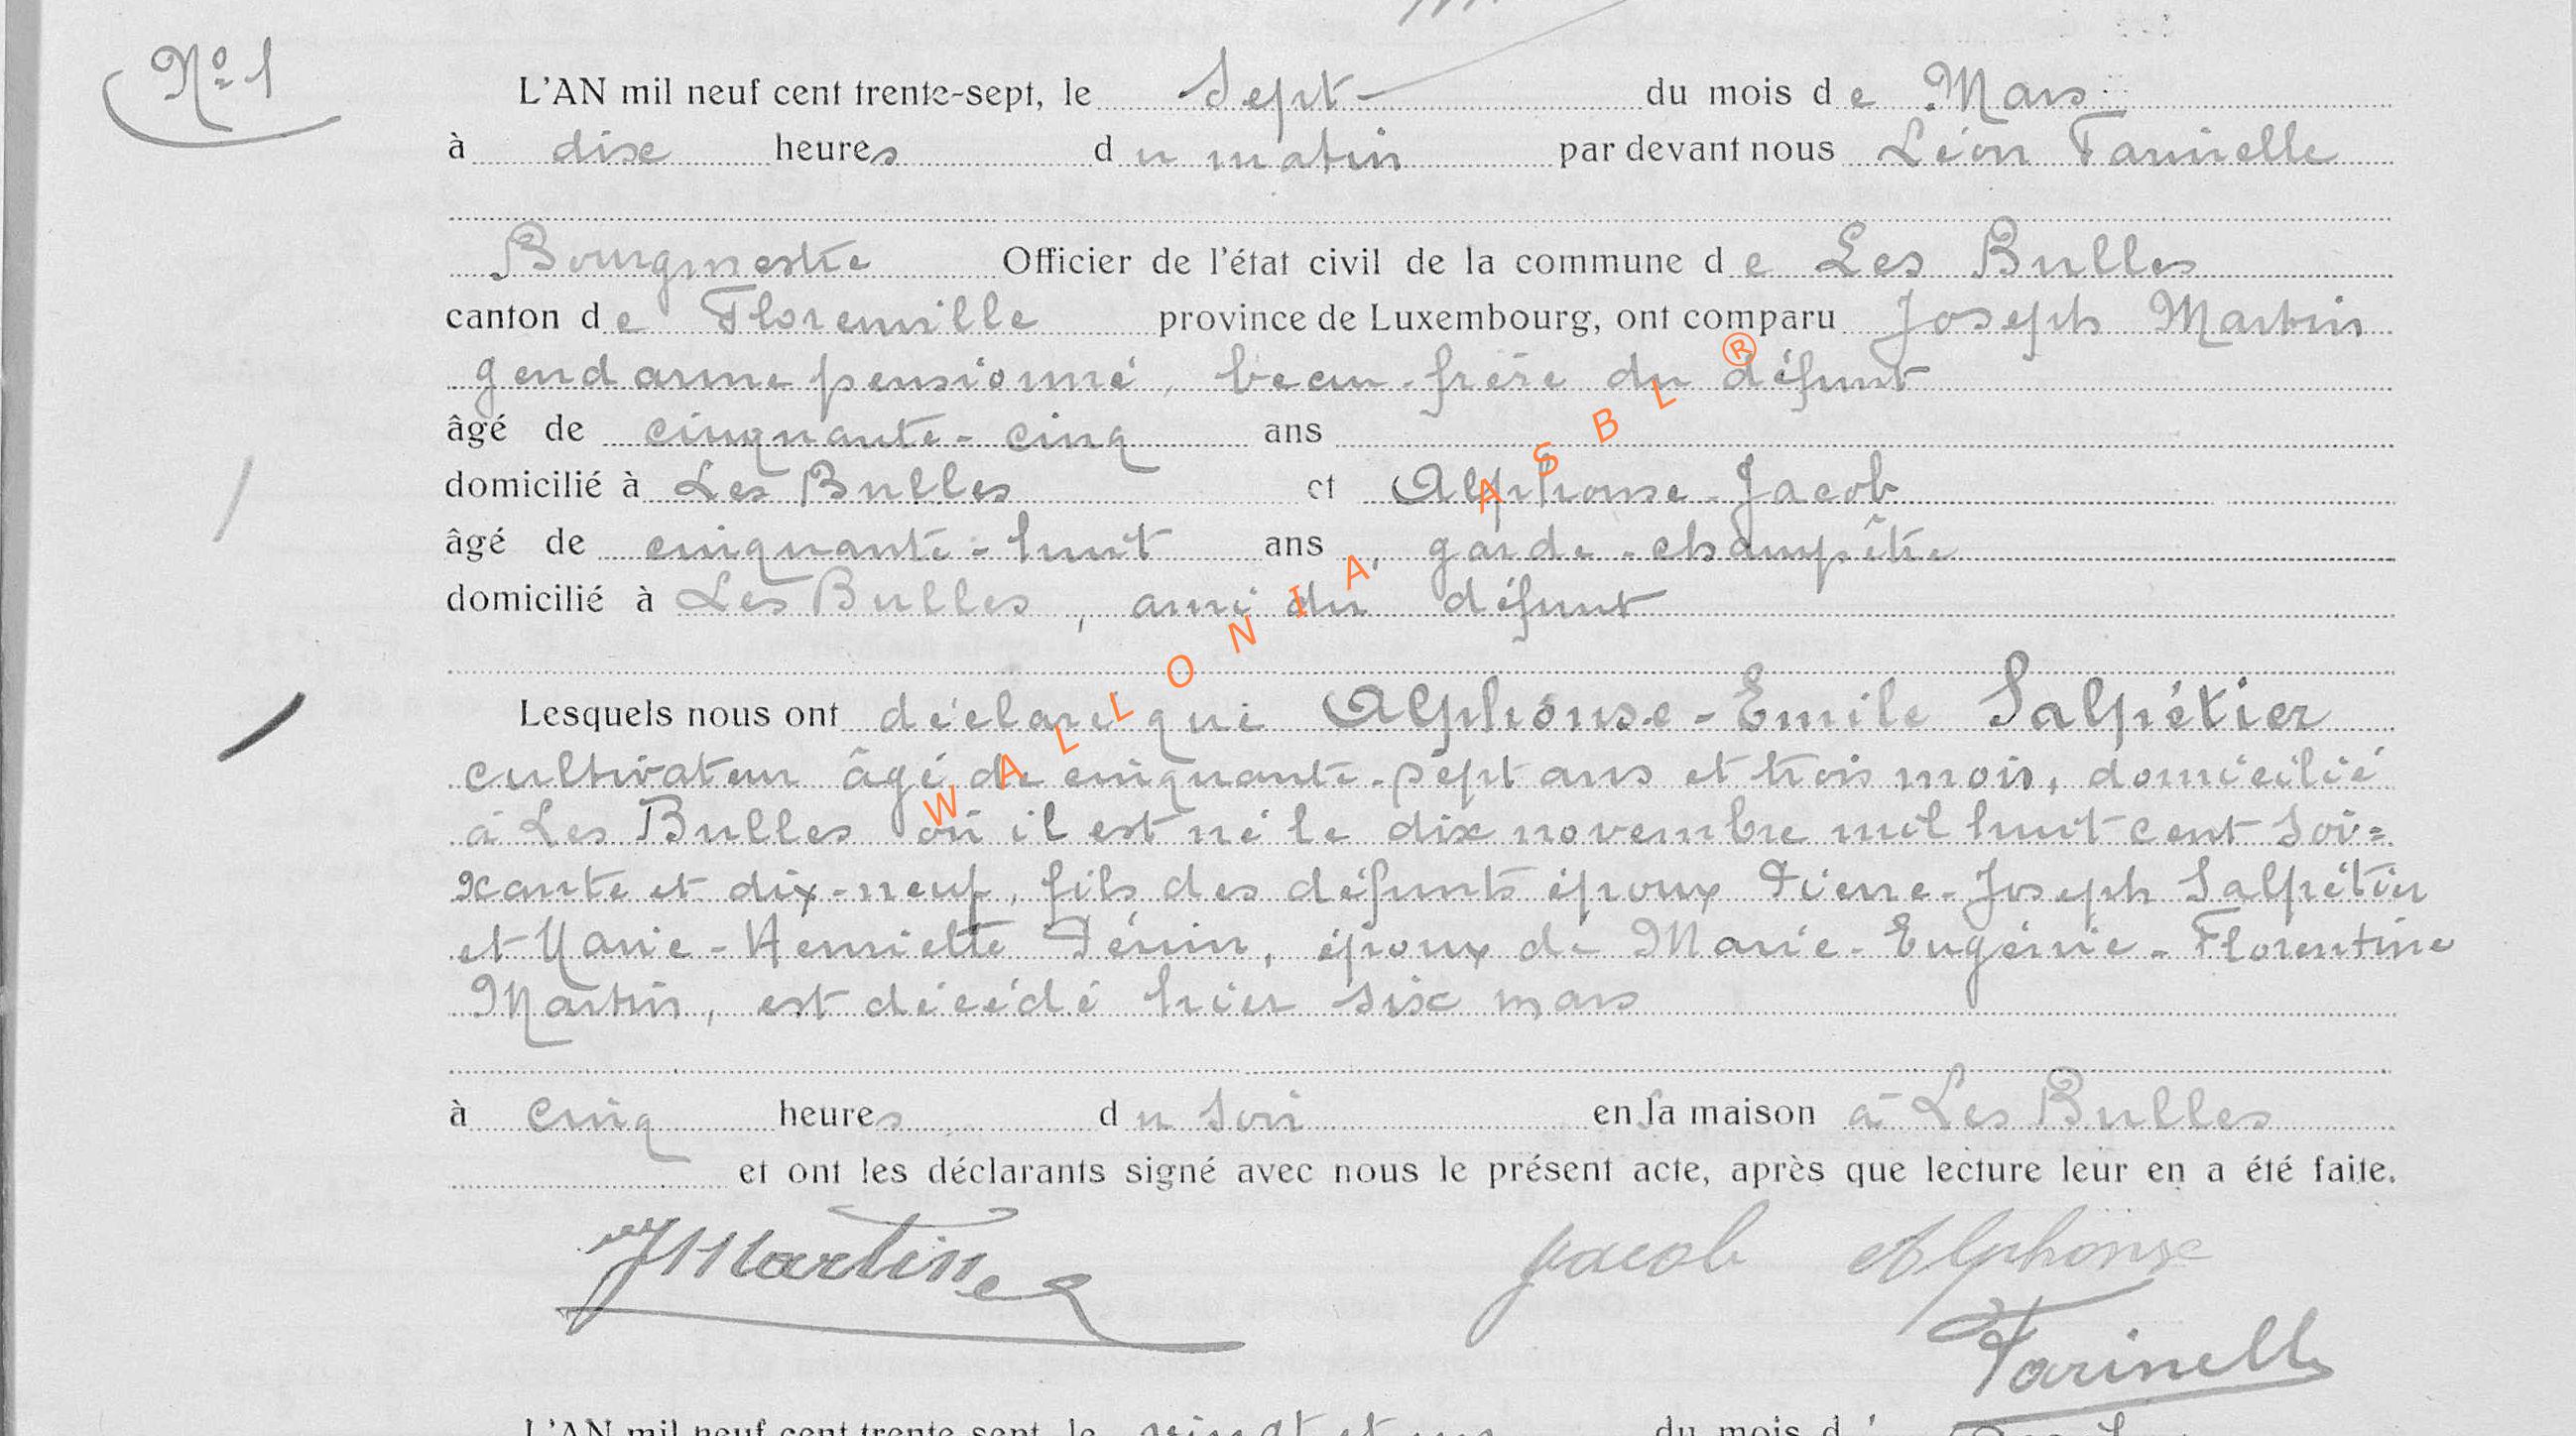 Nº 1
L'AN mil neuf cent trente-sept, le Sept du mois de Mars
à dix heures du matin par devant nous Léon Farinelle
Bourgmestre Officier de l'état civil de la commune de Les Bulles
canton de Florenville province de Luxembourg, ont comparu Joseph Martin
gendarme pensionné, beau-frère du défunt
âgé de cinquante-cinq ans
domicilié à Les Bulles et Alphonse Jacob
âgé de cinquante-huit ans, garde-champêtre
domicilié à Les Bulles, ami du défunt
Lesquels nous ont déclaré que Alphonse-Emile Salpétier
cultivateur âgé de cinquante-sept ans et trois mois, domicilié
à Les Bulles où il est né le dix novembre mil huit cent soi=
xante et dix-neuf, fils des défunts époux Pierre-Joseph Salpétier
et Marie-Henriette Périn, époux de Marie-Eugénie-Florentine
Martin, est décédé hier six mars
à cinq heures du soir en sa maison à Les Bulles
et ont les déclarants signé avec nous le présent acte, après que lecture leur en a été faite.
JMartin
Jacob Alphonse
Farinelle
L'AN mil neuf cent trente-sept, le vingt et un du mois d
WALLONIA ASBL ®